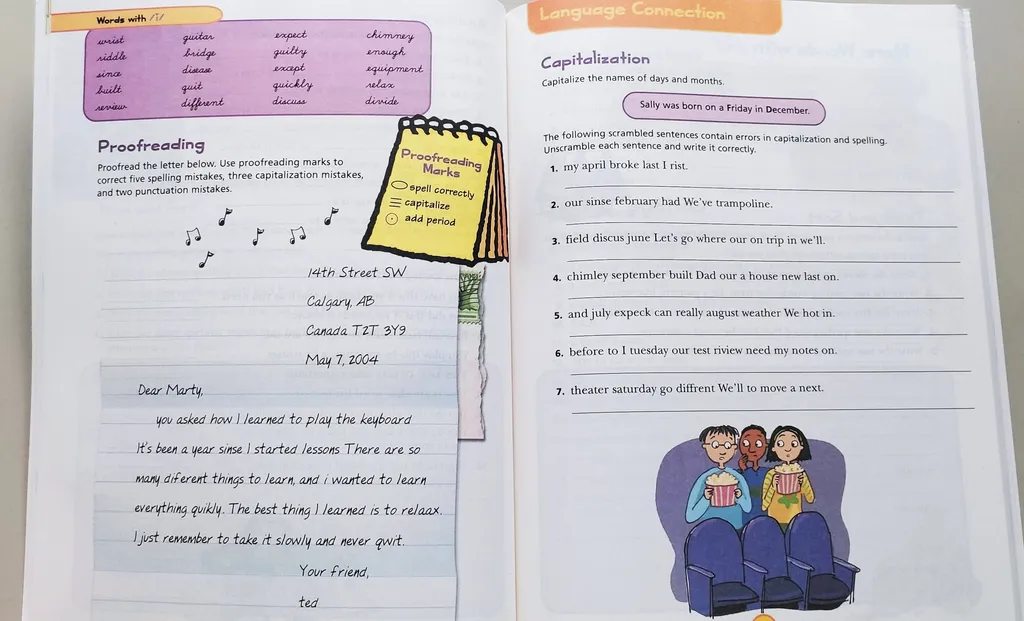 Words with /i/
wrist guitar expect chimney
riddle bridge guilty enough
since disease except equipment
built quit quickly relax
review different discuss divide
Proofreading
Proofread the letter below. Use proofreading marks to
correct five spelling mistakes, three capitalization mistakes,
and two punctuation mistakes.
Proofreading
Marks
spell correctly
capitalize
add period
14th Street SW
Calgary, AB
Canada T2T 3Y9
May 7, 2004
Dear Marty,
you asked how I learned to play the keyboard
It's been a year sinse I started lessons There are so
many diferent things to learn, and i wanted to learn
everything quikly. The best thing I learned is to relaax.
I just remember to take it slowly and never qwit.
Your friend,
ted
Language Connection
Capitalization
Capitalize the names of days and months.
Sally was born on a Friday in December.
The following scrambled sentences contain errors in capitalization and spelling.
Unscramble each sentence and write it correctly.
1. my april broke last I rist.
2. our sinse february had We've trampoline.
3. field discus june Let's go where our on trip in we'll.
4. chimley september built Dad our a house new last on.
5. and july expeck can really august weather We hot in.
6. before to I tuesday our test riview need my notes on.
7. theater saturday go diffrent We'll to move a next.